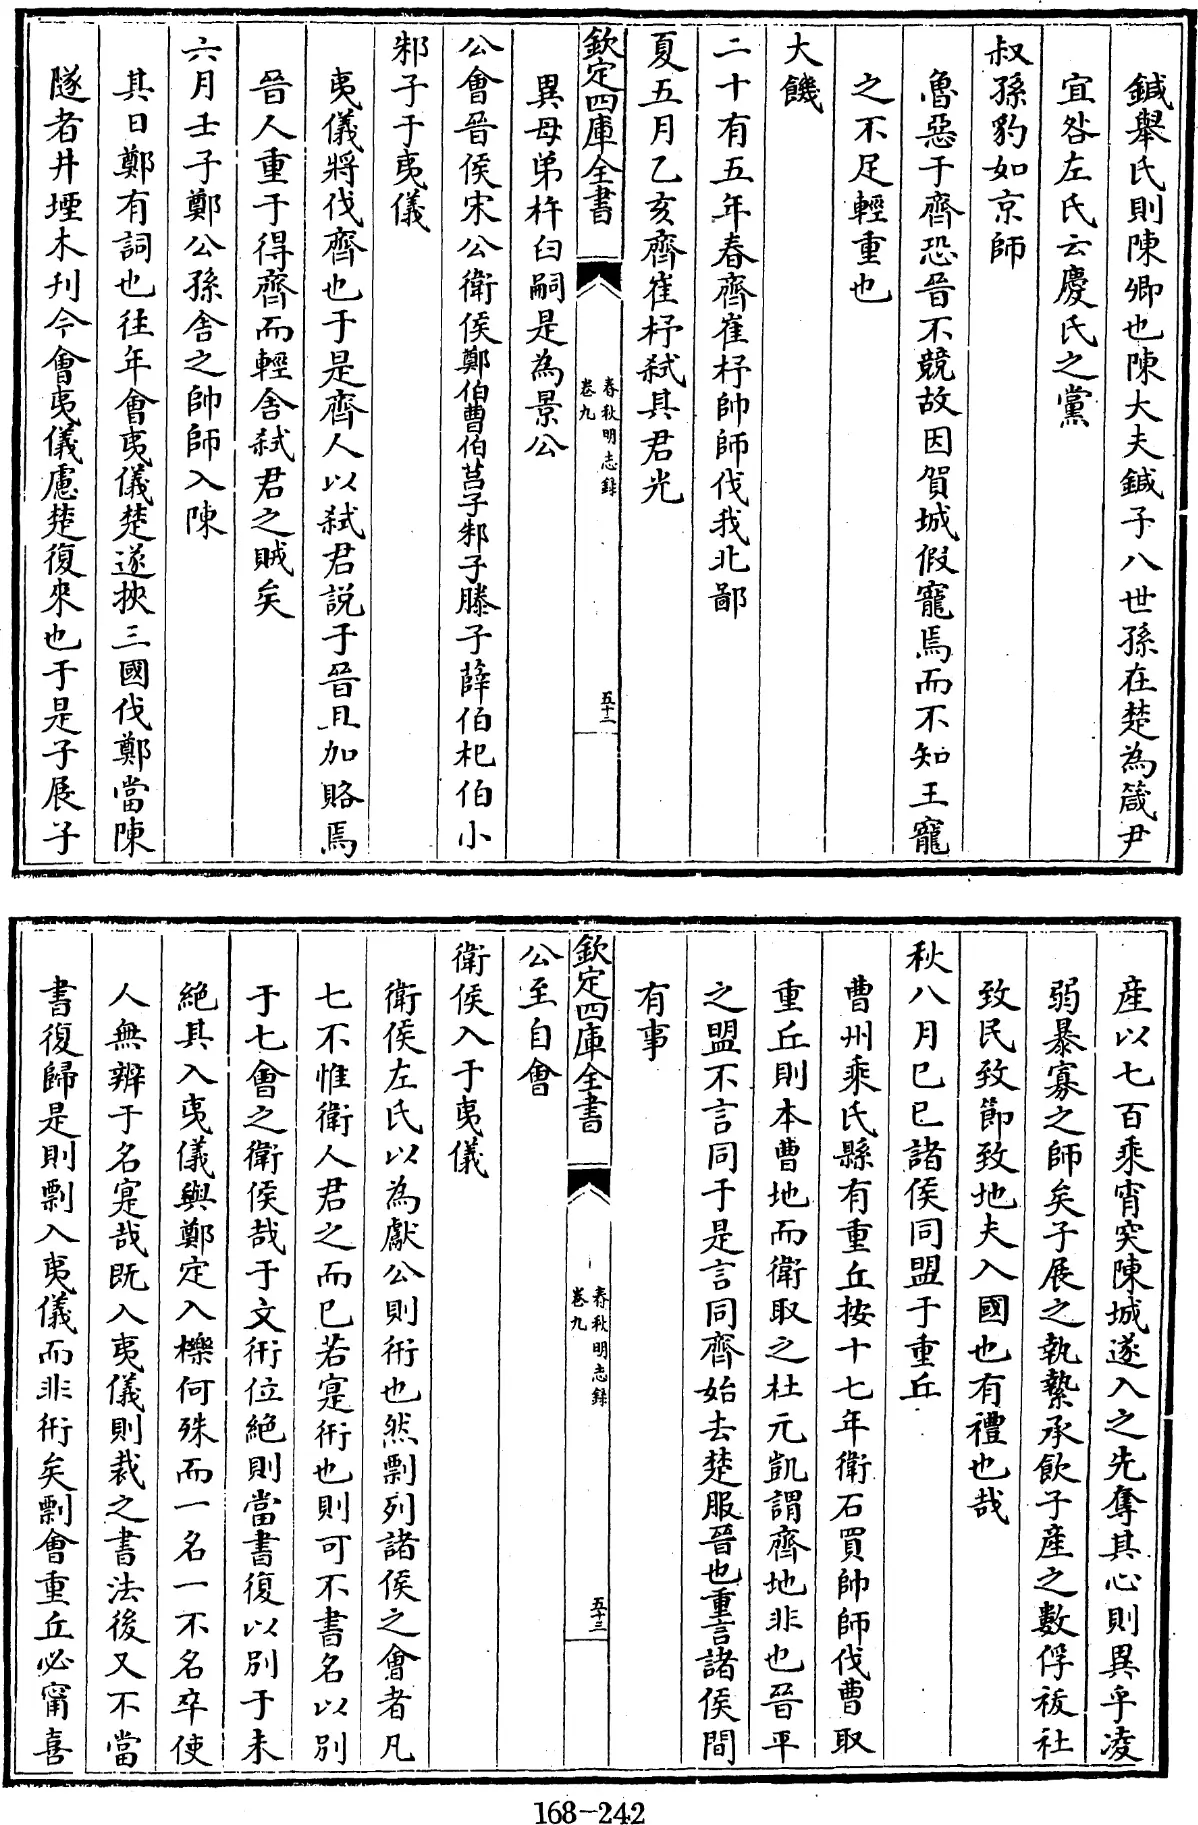 鍼舉氏則陳卿也陳大夫鍼子八世孫在楚為箴尹
宜咎左氏云慶氏之黨
叔孫豹如京師
魯惡于齊恐晉不競故因賀城假寵焉而不知王寵
之不足輕重也
大饑
二十有五年春齊崔杼帥師伐我北鄙
夏五月乙亥齊崔杼弑其君光
欽定四庫全書
春秋明志錄
卷九
五十二
異母弟杵臼嗣是為景公
公會晉侯宋公衛侯鄭伯曹伯莒子邾子滕子薛伯杞伯小
邾子于夷儀
夷儀將伐齊也于是齊人以弑君説于晉且加賂焉
晉人重于得齊而輕舎弑君之賊矣
六月壬子鄭公孫舎之帥師入陳
其日鄭有詞也往年會夷儀楚遂挾三國伐鄭當陳
隧者井堙木刋今會夷儀慮楚復來也于是子展子
産以七百乘宵突陳城遂入之先奪其心則異乎凌
弱暴寡之師矣子展之執縶承飲子産之數俘祓社
致民致節致地夫入國也有禮也哉
秋八月己巳諸侯同盟于重丘
曹州乘氏縣有重丘按十七年衛石買帥師伐曹取
重丘則本曹地而衛取之杜元凱謂齊地非也晉平
之盟不言同于是言同齊始去楚服晉也重言諸侯間
有事
欽定四庫全書
春秋明志錄
卷九
五十三
公至自會
衛侯入于夷儀
衛侯左氏以為獻公則衎也然剽列諸侯之會者凡
七不惟衛人君之而已若寔衎也則可不書名以别
于七會之衛侯哉于文衎位絶則當書復以别于未
絶其入夷儀與鄭定入櫟何殊而一名一不名卒使
人無辨于名寔哉既入夷儀則裁之書法後又不當
書復歸是則剽入夷儀而非衎矣剽會重丘必甯喜
168-242